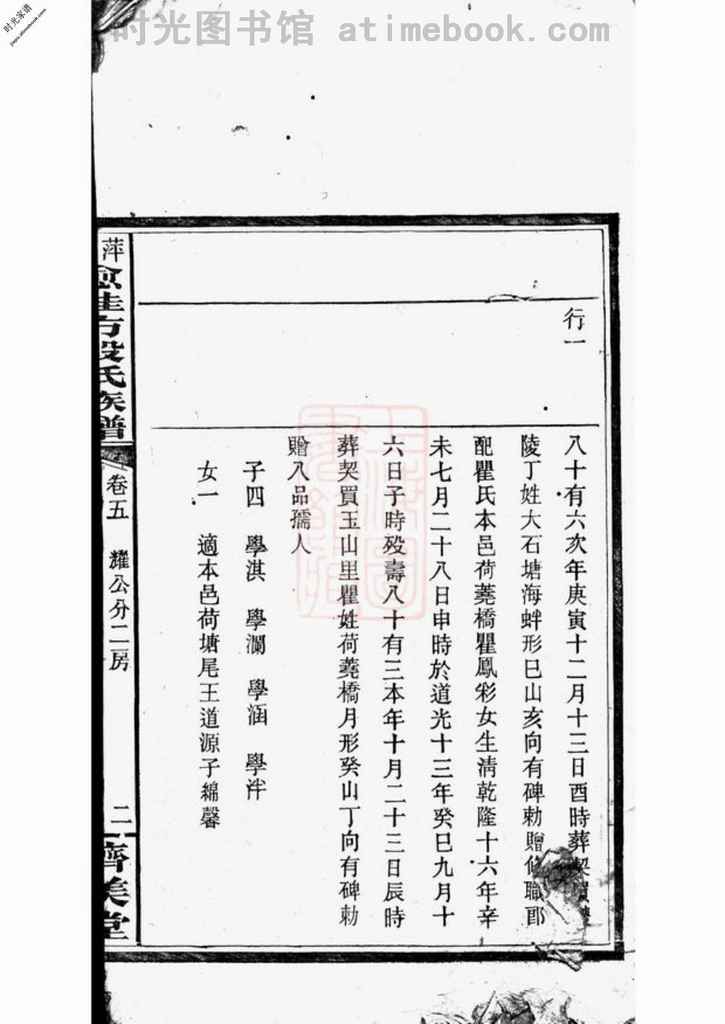 时光图书馆 atimebook.com
时光家谱
行一
八十有六次年庚寅十二月十三日酉時葬契買
陵丁姓大石塘海蚌形巳山亥向有碑勅贈修職郎
配瞿氏本邑荷蕘橋瞿鳳彩女生清乾隆十六年辛
未七月二十八日申時於道光十三年癸巳九月十
六日子時殁壽八十有三本年十月二十三日辰時
葬契買玉山里瞿姓荷蕘橋月形癸山丁向有碑勅
贈八品孺人
子四 學淇 學瀾 學涵 學泮
女一 適本邑荷塘尾王道源子綿馨
萍 段氏族譜 卷五 耀公分二房 二 齊美堂